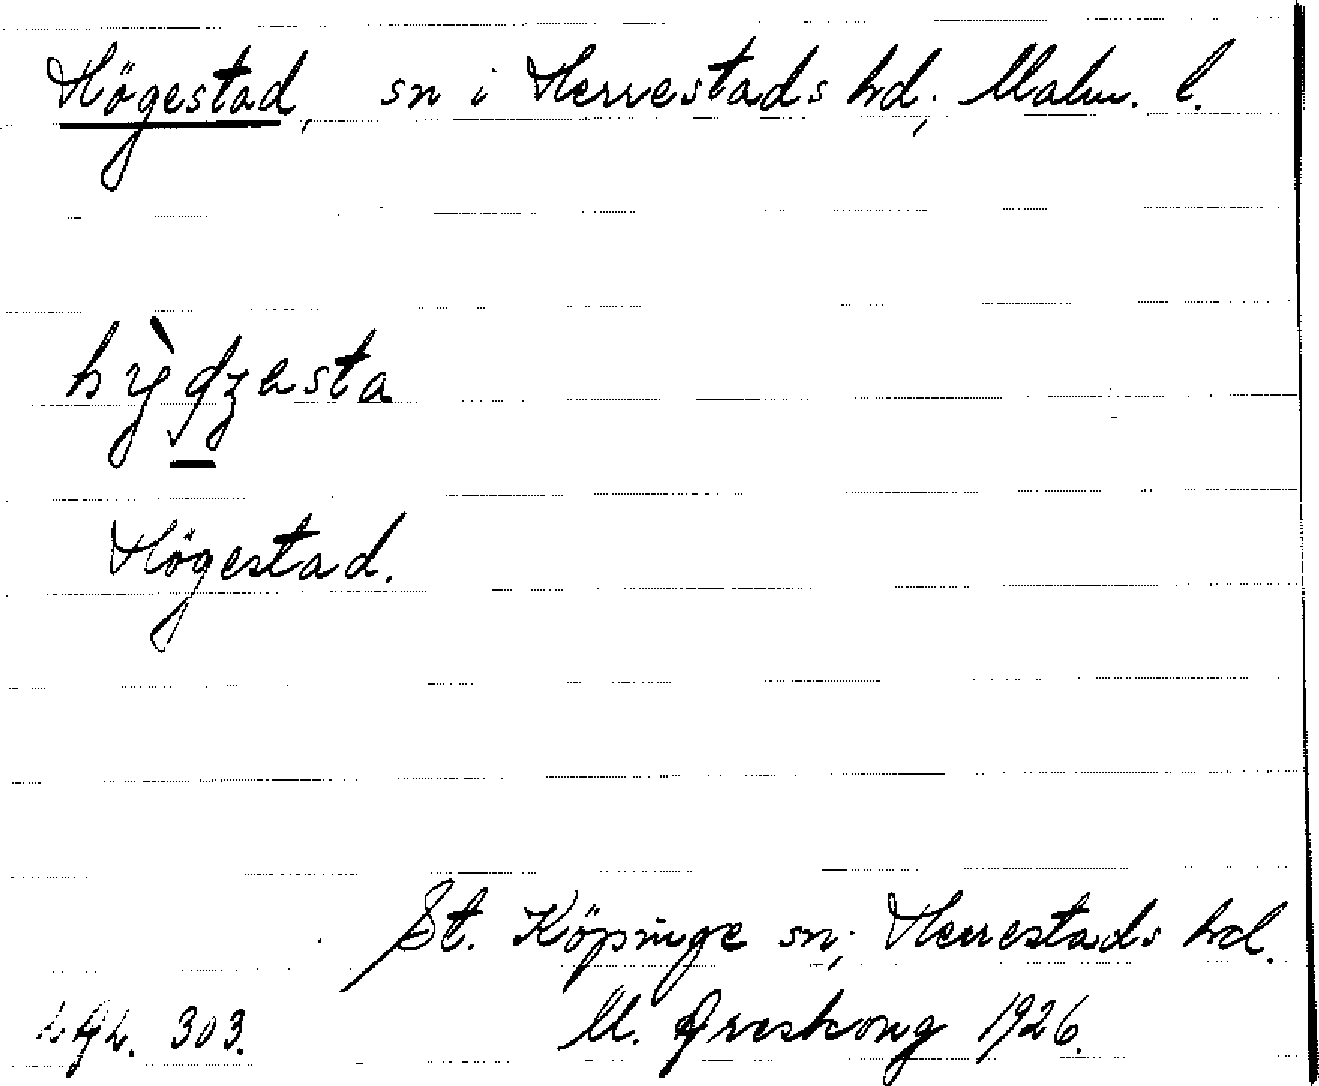 Högestad, sn i Herrestads hd, Malm. l.
hỳdʒesta
Högestad.
St. Köpinge sn, Herrestads hd.
303. M. Areskoug 1926.